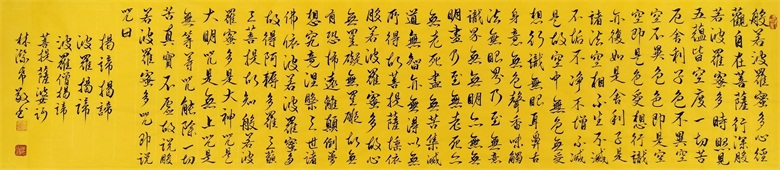 般若波羅蜜多心經
觀自在菩薩行深般
若波羅蜜多時照見
五蘊皆空度一切苦
厄舍利子色不異空
空不異色色即是空
空即是色受想行識
亦復如是舍利子是
諸法空相不生不滅
不垢不淨不增不減
是故空中無色無受
想行識無眼耳鼻舌
身意無色聲香味觸
法無眼界乃至無
意識界無無明亦無無
明盡乃至無老死亦
無老死盡無苦集滅
道無智亦無得以無
所得故菩提薩埵依
般若波羅蜜多故心
無罣礙無罣礙故無
有恐怖遠離顛倒夢
想究竟涅槃三世諸
佛依般若波羅蜜多
故得阿耨多羅三藐
三菩提故知般若波
羅蜜多是大神咒是
大明咒是無上咒是
無等等咒能除一切
苦真實不虛故說般
若波羅蜜多咒即說
咒曰
揭諦揭諦
波羅揭諦
波羅僧揭諦
菩提薩婆訶